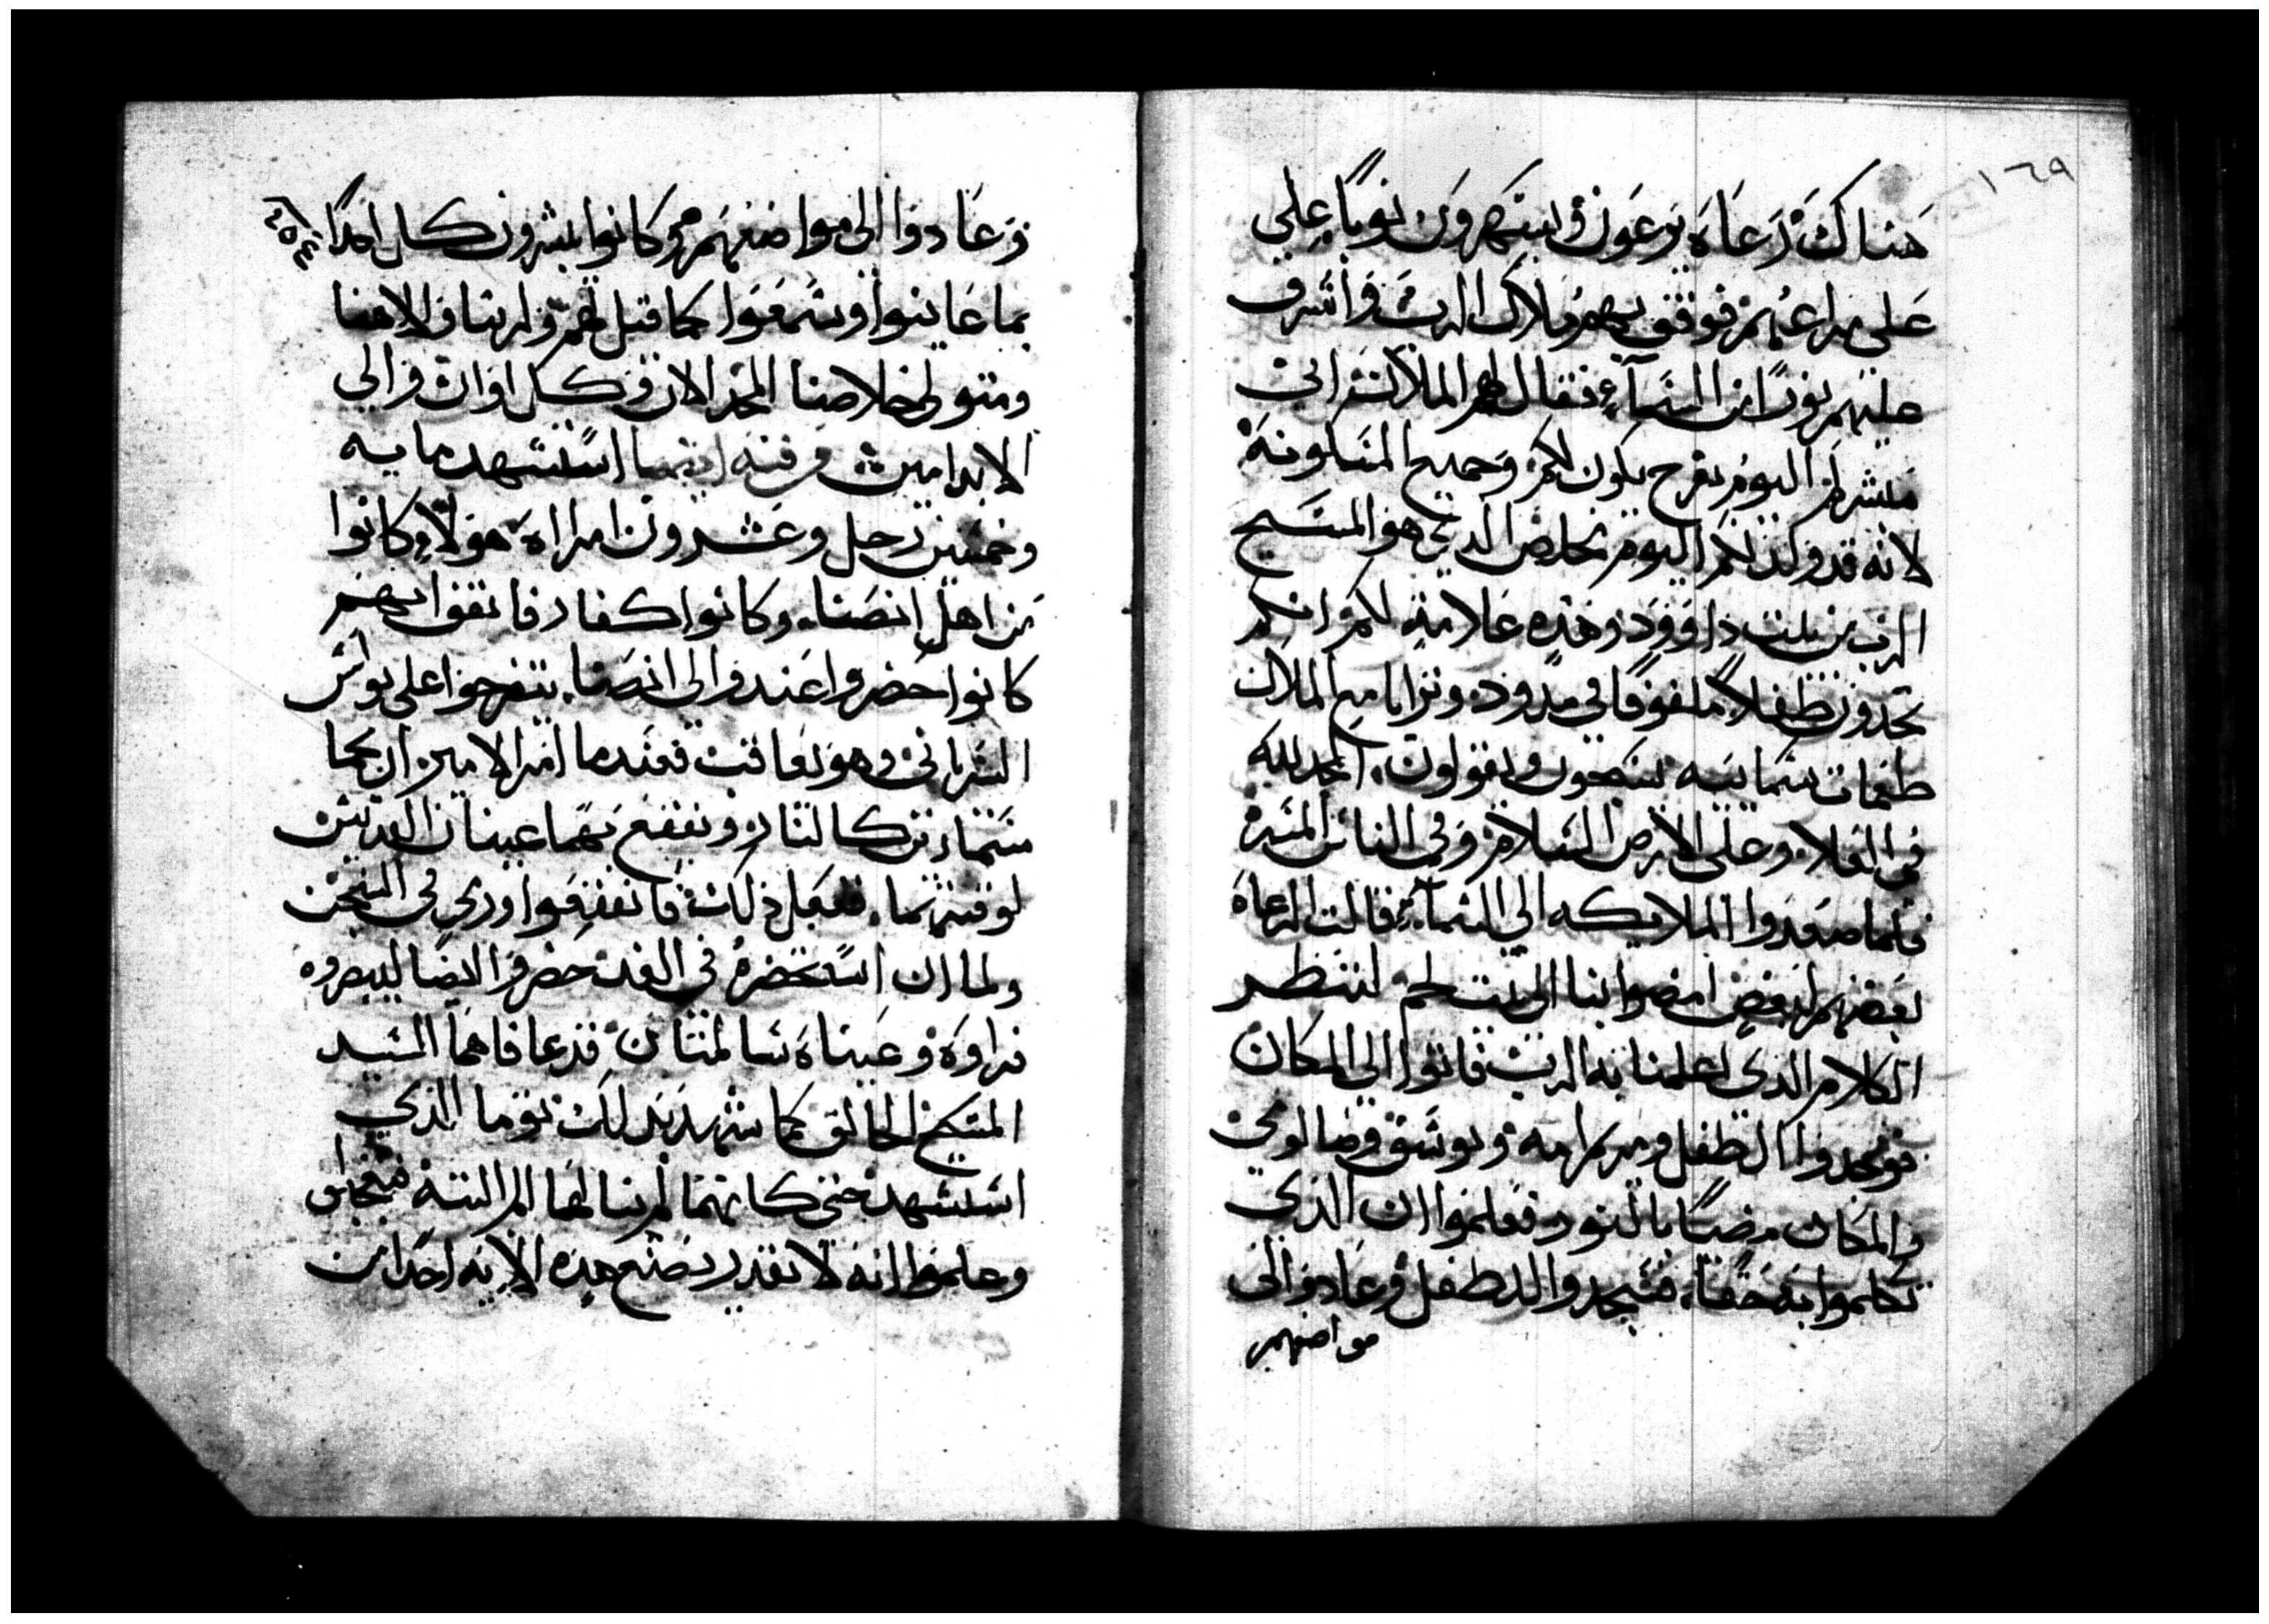 ١٦٩
هناك رعاه يرعون ويسهرون نوبًا علي
علي مراعيهم فوقف بهم ملاك الرب واشرف
عليهم نورًا من السماء فقال لهم الملاك اني
مبشركم اليوم بفرح يكون لكم وجميع المسكونة
لانه قد ولد لكم اليوم مخلص الدي هو المسيح
الرب من بيت داوود وهذه علامة لكم انكم
تجدون طفلاً ملفوفًا في مدود وترايا مع الملاك
طغمات سمائيه يسبحون ويقولون المجد لله
في العلا وعلى الارض السلام وفي الناس المسره
فلما صعدوا الملايكه الي السماء قالت الرعاه
بعضهم لبعض امضوا بنا الى بيت لحم لننظر
الكلام الدى اعلمنا به الرب فاتوا الي المكان
فوجدوا الطفل ومريم امه ويوسف وصالومي
والمكان مضيًا بالنور فعلموا ان الذي
تكلموا به حقًا فسجدوا للطفل وعادوا الى
مواضعهم
٢٥٤
وعادوا الى مواضعهم وكانوا يبشرون كل احدًا
بما عاينوا وسمعوا كما قيل لهم ولربنا والاهنا
ومتولي خلاصنا المجد الان وكل اوان والي
الابد امين وفيه ايضا استشهد مايه
وخمسين رجل وعشرون امراه هولاء كانوا
من اهل انصنا وكانوا كفار فاتفق انهم
كانوا حضروا عند والى انصنا يتفرجوا على بولس
السرياني وهو يعاقب فعندما امر الامير ان يحما
مسمارين كالنار ويقفع بهما عينان القديس
لوقتهما ففعل ذلك فانقفعوا ورمي في السجن
ولما ان استحضره في الغد حضروا ايضا ليبصروه
فراوه وعيناه سالمتان قد عافاهما السيد
المسيح الخالق كما شهد بدلك توما الذي
استشهد كانهما لم ينالهما الم البته فتعجبوا
وعلموا انه لا يقدر يصنع هذه الايه احدًا من